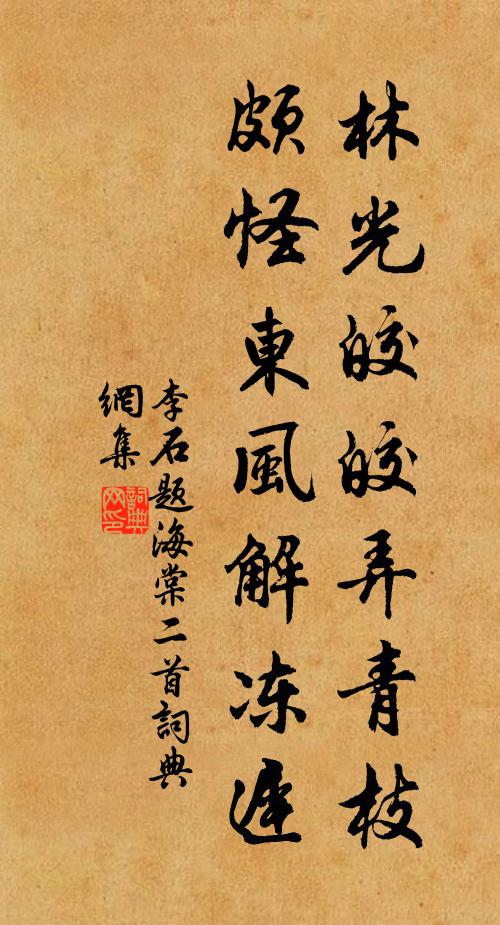 林光皎皎弄青枝
頗怪東風解冻遲
李石题海棠二首詞典
網集
詞典网印